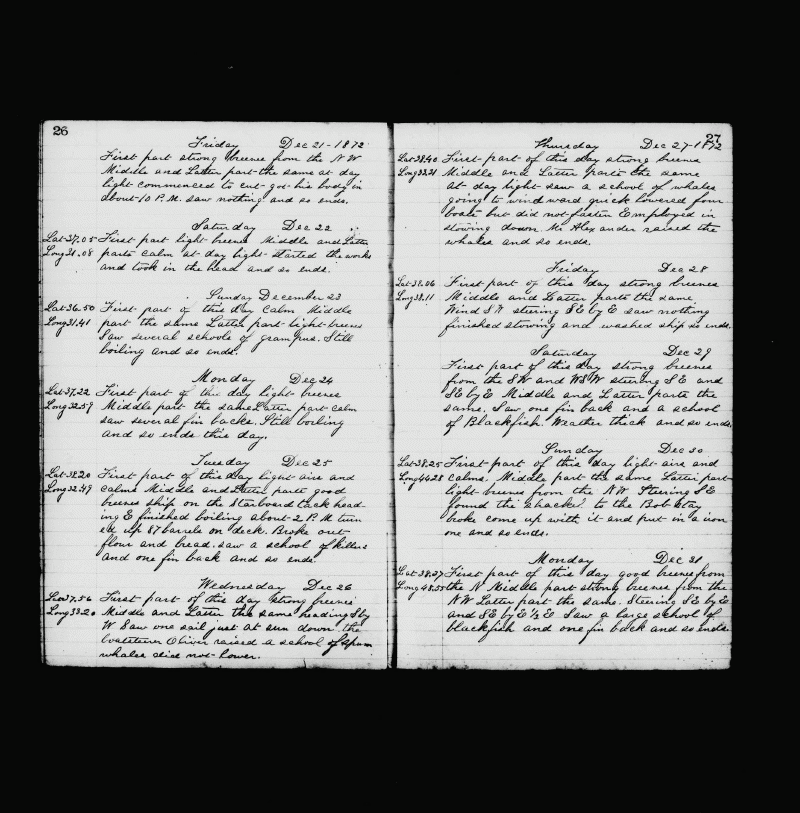 26
Friday Dec 21-1872
First part strong breezes from the N W
Middle and Latter part the same at day
light commenced to cut got his body in
about 10 P.M. saw nothing and so ends.
Saturday Dec 22
Lat 37.05 First part light breezes Middle and Latter
Long 31.08 parts calm at day light started the works
and took in the head and so ends.
Sunday December 23
Lat 36.50 First part of this day calm Middle
Long 31.41 part the same Latter part light breezes
Saw several schools of grampus. Still
boiling and so ends.
Monday Dec 24
Lat 37.22 First part of this day light breezes
Long 32.59 Middle part the same Latter part calm
saw several fin backs. Still boiling
and so ends this day.
Tuesday Dec 25
Lat 38.20 First part of this day light airs and
Long 32.49 calms Middle and Latter parts good
breezes ship on the Starboard tack head-
ing E finished boiling about 2 P.M. turn
ed up 87 barrels on deck. Broke out
flour and bread. saw a school of killers
and one fin back and so ends.
Wednesday Dec 26
Lat 37.56 First part of this day strong breezes
Long 33.20 Middle and Latter the same heading S by
W Saw one sail just at sun down the
boatsteerer Oliver raised a school of spurm
whales did not lower.
27
Thursday Dec 27-1872
Lat 38.40 First part of this day strong breezes
Long 33.21 Middle and Latter parts the same
at day light saw a school of whales
going to wind ward quick lowered four
boats but did not fasten Employed in
stowing down. Mr Alexander raised the
whales and so ends.
Friday Dec 28
Lat 38.06 First part of this day strong breezes
Long 38.11 Middle and Latter parts the same
Wind S W steering S E by E saw nothing
finished stowing and washed ship so ends.
Saturday Dec 29
First part of this day strong breezes
from the S W and W S W steering S E and
S E by E Middle and Latter parts the
same. Saw one fin back and a school
of Blackfish. Weather thick and so ends.
Sunday Dec 30
Lat 38.25 First part of this day light airs and
Long 44.28 calms. Middle part the same Latter part
light breezes from the N W Steering S E
found the shackel to the Bob stay
broke come up with it and put in a iron
one and so ends.
Monday Dec 31
Lat 38.27 First part of this day good breezes from
Long 48.55 the N Middle part strong breezes from the
N W Latter part the same. Steering S E by E
and S E by E ½ E Saw a large school of
blackfish and one fin back and so ends.